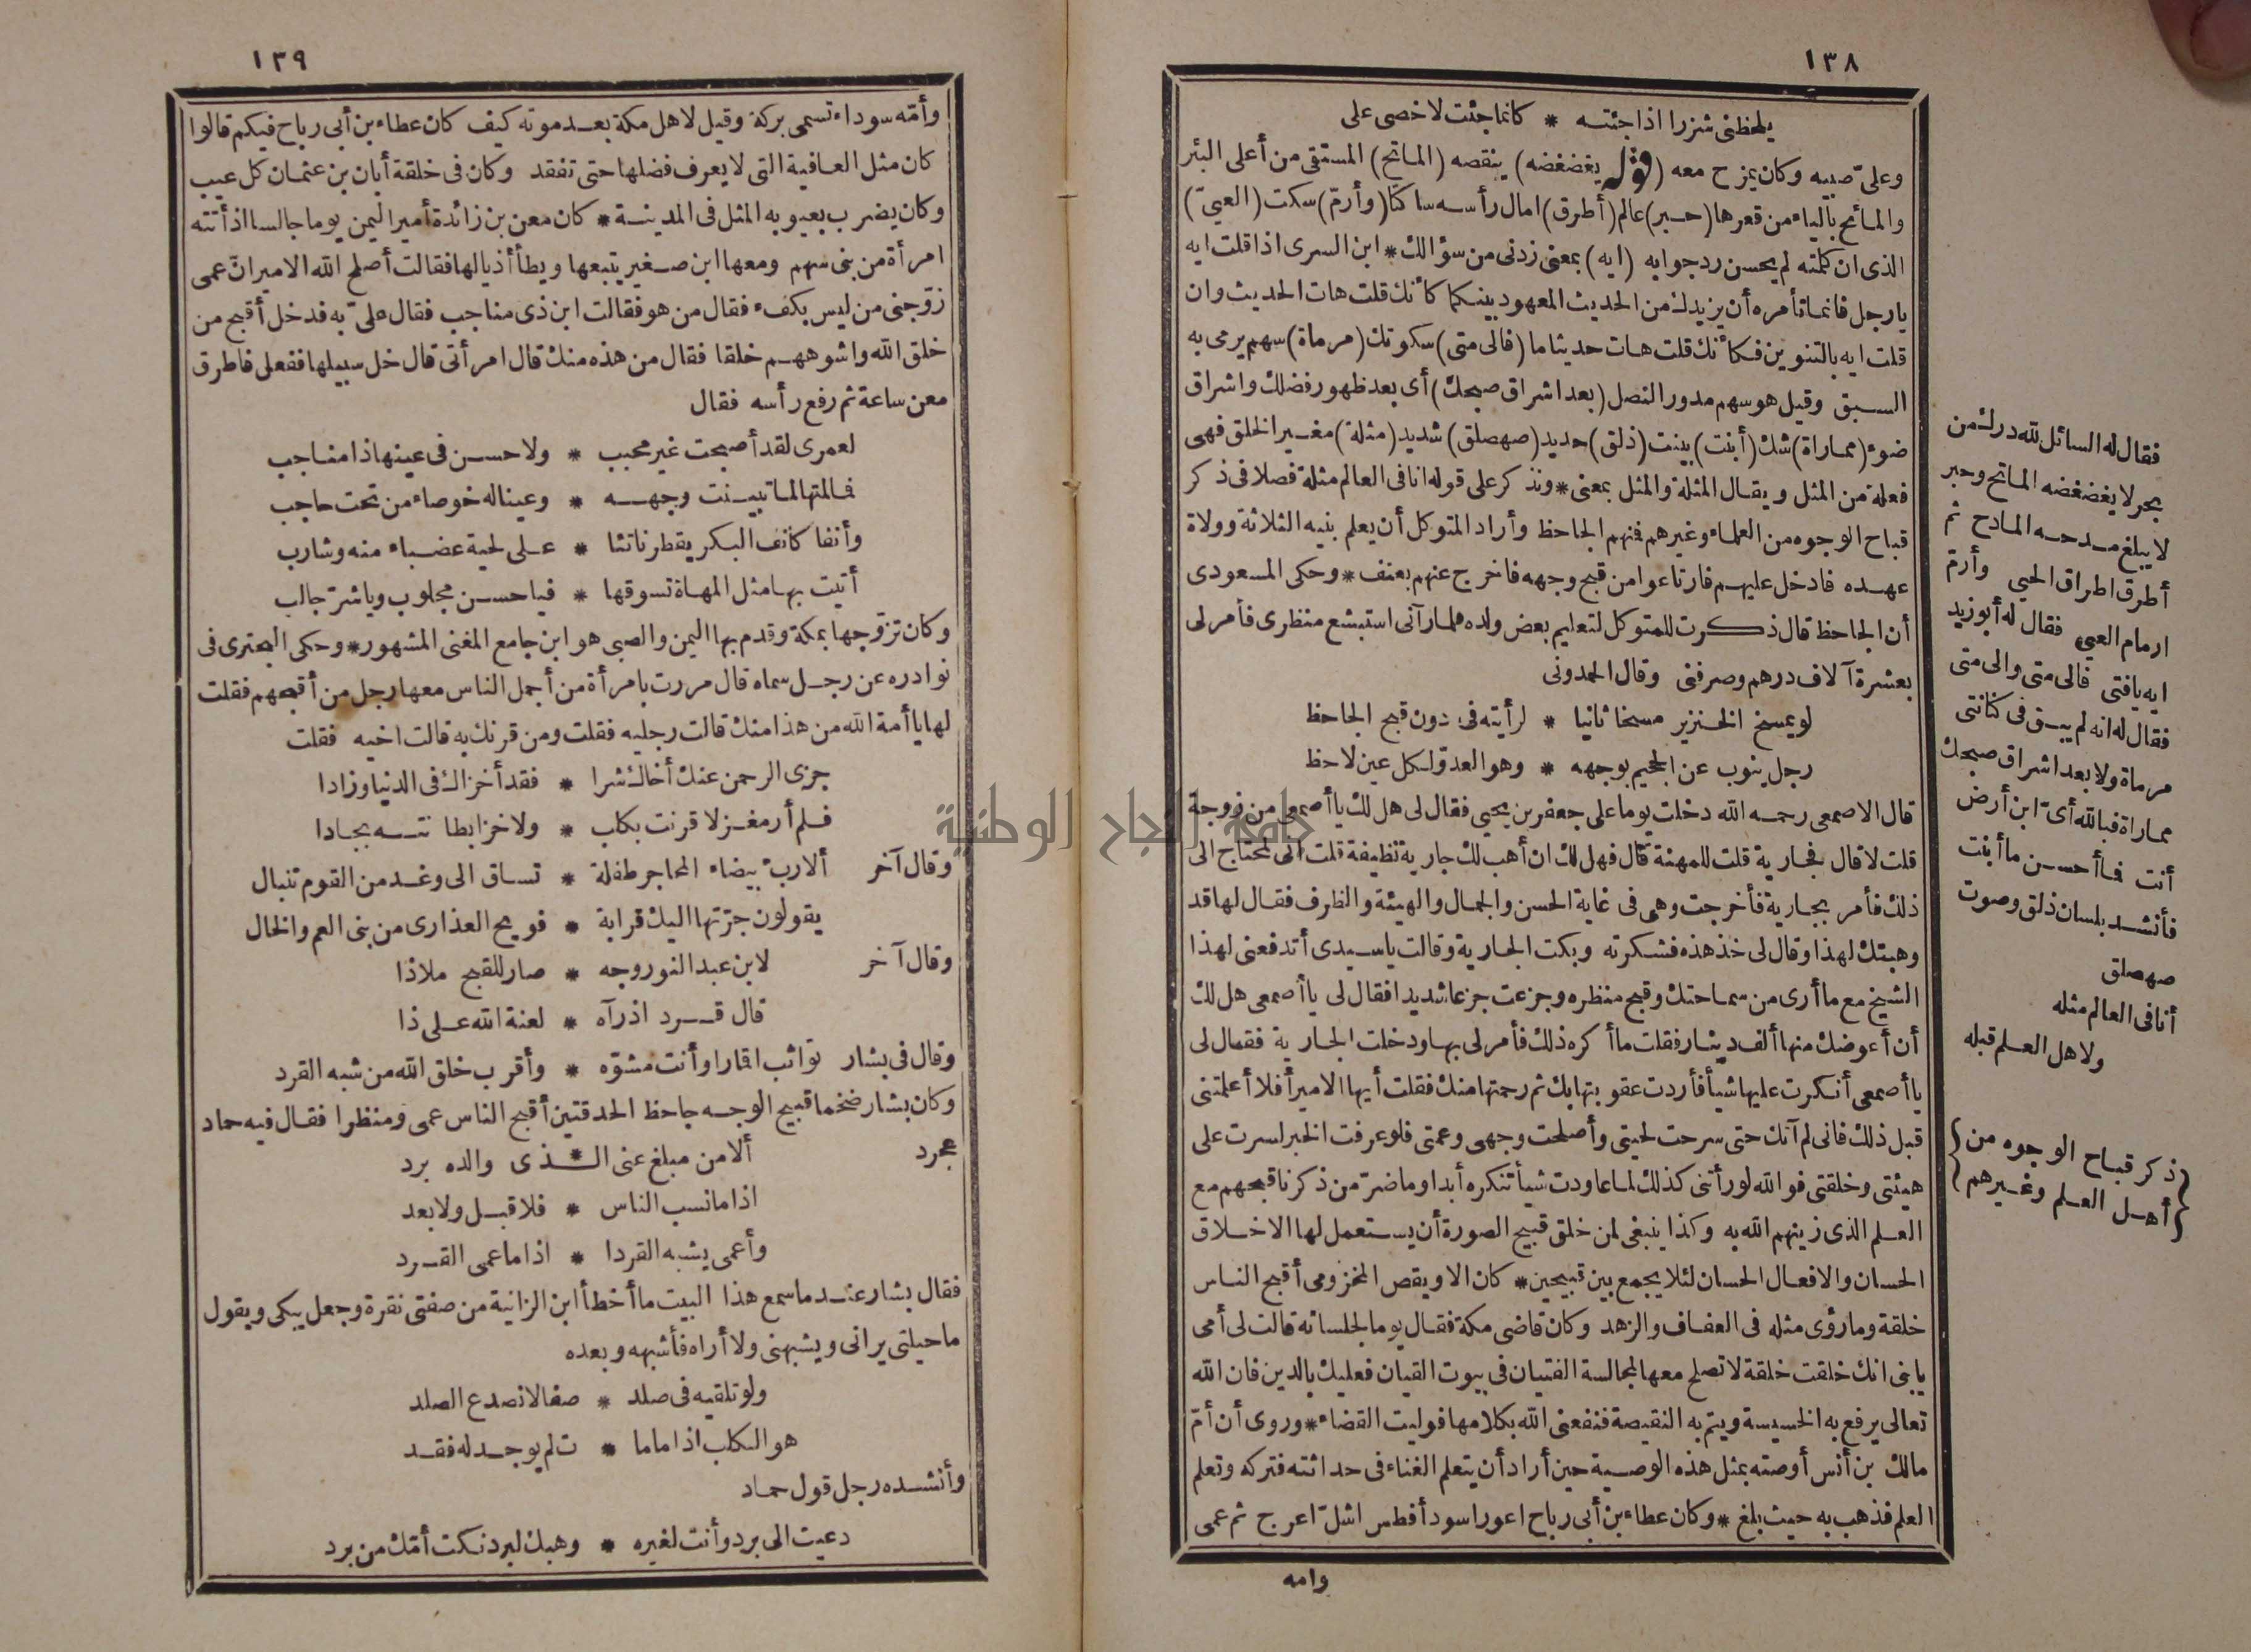 ١٣٨
يلحظنى شزرا اذا جئتـه * كانما جئت لاخصى على
وعلىّ صبيه وكان يمزح معه (قوله يغضغضه) ينقصه (الماتح) المستقى من أعلى البئر
والمائح بالياء من قعرها (حبر) عالم (أطرق) امال رأسه ساكتا (وأرمّ) سكت (العيىّ)
الذى ان كلته لم يحسن رد جوابه (ايه) بمعنى زدنى من سؤالك * ابن السرى اذا قلت ايه
يارجل فانما تأمره أن يزيدك من الحديث المعهود بينكما كأنك قلت هات الحديث وان
قلت ايه بالتنوين فكأنك قلت هات حديثا ما (فالى متى) سكوتك (مرماة) سهم يرمى به
السبق وقيل هو سهم مدور النصل (بعد اشراق صبحك) أى بعد ظهور فضلك واشراق
ضوء (مماراة) شك (أبنت) بينت (ذلق) حديد (صهصلق) شديد (مثلة) مغير الخلق فهى
فعلة من المثل ويقال المثلة والمثل بمعنى * ونذكر على قوله انا فى العالم مثلة فصلا فى ذكر
قباح الوجوه من العلماء وغيرهم فمنهم الجاحظ وأراد المتوكل أن يعلم بنيه الثلاثة وولاة
عهده فادخل عليهم فارتاعوا من قبح وجهه فاخرج عنهم بعنف * وحكى المسعودى
أن الجاحظ قال ذكرت للمتوكل لتعليم بعض ولده فلما رآنى استبشع منظرى فأمر لى
بعشرة آلاف درهم وصرفنى وقال الحمدونى
لو يمسخ الخنزير مسخا ثانيا * لرأيته فى دون قبح الجاحظ
رجل ينوب عن الجحيم بوجهه * وهو العدوّ لكل عين لاحظ
قال الاصمعى رحمه الله دخلت يوما على جعفر بن يحيى فقال لى هل لك يا أصمعى من زوجة
قلت لا قال فجارية قلت للمهنة قال فهل لك ان أهب لك جارية نظيفة قلت انى لمحتاج الى
ذلك فأمر بجارية فأخرجت وهى فى غاية الحسن والجمال والهيئة والظرف فقال لها قد
وهبتك لهذا وقال لى خذ هذه فشكرته وبكت الجارية وقالت ياسيدى أتدفعنى لهذا
الشيخ مع ما أرى من سماحتك وقبح منظره وجزعت جزعا شديدا فقال لى يا أصمعى هل لك
أن أعوضك منها ألف دينار فقلت ما أكره ذلك فأمر لى بها ودخلت الجارية فقال لى
يا أصمعى أنكرت عليها شيأ فأردت عقوبتها بك ثم رحمتها منك فقلت أيها الامير أفلا أعلمتنى
قبل ذلك فانى لم آتك حتى سرحت لحيتى وأصلحت وجهى وعمتى فلو عرفت الخبر لسرت على
هيئتى وخلقتى فو الله لو رأتنى كذلك لما عاودت شيأ تنكره أبدا وما ضرّ من ذكرنا قبحهم مع
العلم الذى زينهم الله به وكذا ينبغى لمن خلق قبيح الصورة أن يستعمل لها الاخلاق
الحسان والافعال الحسان لئلا يجمع بين قبيحين * كان الاويقص المخزومى أقبح الناس
خلقة وما رؤى مثله فى العفاف والزهد وكان قاضى مكة فقال يوما لجلسائه قالت لى أمى
يا بنى انك خلقت خلقة لا تصلح معها لمجالسة الفتيان فى بيوت القيان فعليك بالدين فان الله
تعالى يرفع به الخسيسة ويتم به النقيصة فنفعنى الله بكلامها فوليت القضاء * وروى أن أمّ
مالك بن أنس أوصته بمثل هذه الوصية حين أراد أن يتعلم الغناء فى حداثته فتركه وتعلم
العلم فذهب به حيث بلغ * وكان عطاء بن أبى رباح اعور اسود أفطس اشلّ اعرج ثم عمى
وامه
فقال له السائل لله درك من
بحر لا يغضغضه الماتح وحبر
لا يبلغ مدحه المادح ثم
أطرق اطراق الحيى وأرمّ
ارمام العيى فقال له أبو زيد
ايه يا فتى فالى متى والى متى
فقال له انه لم يبق فى كنانتى
مرماة ولا بعد اشراق صبحك
مماراة فبالله أىّ ابن أرض
أنت فما أحسن ما أبنت
فأنشد بلسان ذلق وصوت
صهصلق
أنا فى العالم مثله
ولاهل العلم قبله
{ذكر قباح الوجوه من
أهل العلم وغيرهم}
١٣٩
وأمّه سوداء تسمى بركة وقيل لاهل مكة بعد موته كيف كان عطاء بن أبى رباح فيكم قالوا
كان مثل العافية التى لا يعرف فضلها حتى تفقد وكان فى خلقة أبان بن عثمان كل عيب
وكان يضرب بعيوبه المثل فى المدينة * كان معن بن زائدة أمير اليمن يوما جالسا اذ أتته
امرأة من بنى سهم ومعها ابن صغير يتبعها ويطأ أذيالها فقالت أصلح الله الامير ان عمى
زوّجنى من ليس بكفء فقال من هو فقالت ابن ذى مناجب فقال علىّ به فدخل أقبح من
خلق الله واشوههم خلقا فقال من هذه منك قال امرأتى قال خل سبيلها ففعل فاطرق
معن ساعة ثم رفع رأسه فقال
لعمرى لقد أصبحت غير محبب * ولا حسن فى عينها ذا مناجب
فما لمتها لما تبينت وجهه * وعينا له خوصاء من تحت حاجب
وأنفا كانف البكر يقطر ناتئا * على لحية عضباء منه وشارب
أتيت بها مثل المهاة تسوقها * فيا حسن مجلوب ويا شرّ جالب
وكان تزوّجها بمكة وقدم بها اليمن والصبى هو ابن جامع المغنى المشهور * وحكى البحترى فى
نوادره عن رجل سماه قال مررت بامرأة من أجمل الناس معها رجل من أقبحهم فقلت
لها يا أمة الله من هذا منك قالت رجليه فقلت ومن قرنك به قالت اخيه فقلت
جزى الرحمن عنك أخاك شرا * فقد أخزاك فى الدنيا وزادا
فلم أر مغزلا قرنت بكلب * ولا خزا بطانته بجادا
وقال آخر ألا ربّ بيضاء المحاجر طفلة * تساق الى وغد من القوم تنبال
يقولون جرّتها اليك قرابة * فويح العذارى من بنى العم والخال
وقال آخر لابن عبد النور وجه * صار للقبح ملاذا
قال قرد اذ رآه * لعنة الله على ذا
وقال فى بشار تواثب اقمارا وأنت مشوّه * وأقرب خلق الله من شبه القرد
وكان بشار ضخما قبيح الوجه جاحظ الحدقتين أقبح الناس عمى ومنظرا فقال فيه حماد
عجرد ألا من مبلغ عنى الـ * ـذى والده برد
اذا ما نسب الناس * فلا قبل ولا بعد
وأعمى يشبه القردا * اذا ما عمى القرد
فقال بشار عند ما سمع هذا البيت ما أخطأ ابن الزانية من صفتى نقرة وجعل يبكى ويقول
ما حيلتى يرانى ويشبهنى ولا أراه فأشبهه وبعده
ولو تلقيه فى صلد * صفا لانصدع الصلد
هو الكلب اذا ما ما * ت لم يوجد له فقد
وأنشده رجل قول حماد
دعيت الى برد وأنت لغيره * وهبك لبرد نكت أمّك من برد
جامعة النجاح الوطنية